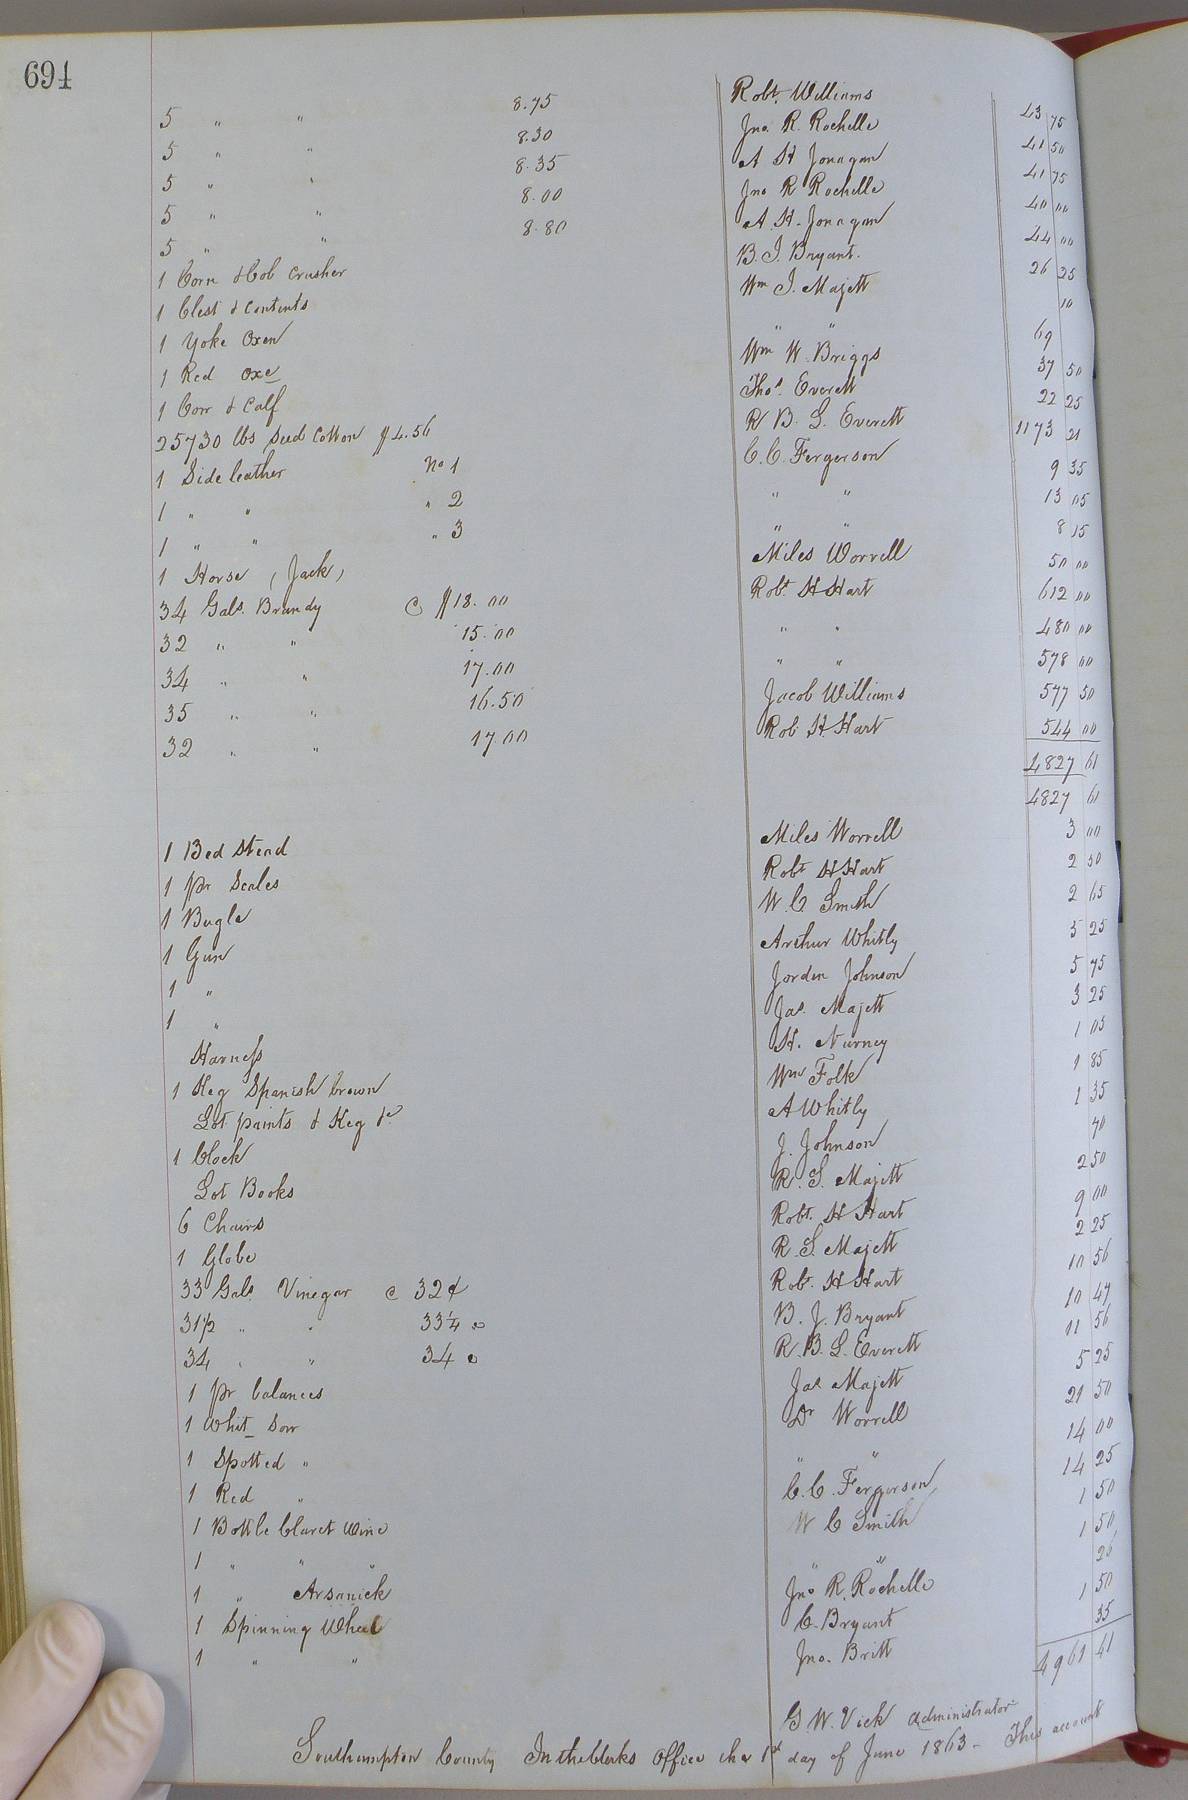 694
5 " " 8.75 Robt. Williams 43 75
5 " " 8.30 Jno. R. Rochelle 41 50
5 " " 8.35 A H Jonagan 41 75
5 " " 8.00 Jno R Rochelle 40 00
5 " " 8.80 A. H. Jonagan 44 00
1 Corn & Cob Crusher B. J. Bryant. 26 25
1 Chest & Contents Wm J. Majett 10
1 Yoke Oxen " " 69
1 Red Oxe Wm W. Briggs 37 50
1 Cow & Calf Thos. Everett 22 25
25730 lbs Seed Cotton $4.56 R B. L. Everett 1173 21
1 Side leather No 1 C. C. Fergerson 9 35
1 " " " 2 " " 13 05
1 " " " 3 " " 8 15
1 Horse (Jack) Miles Worrell 50 00
34 Gals. Brandy @ $18.00 Robt. H Hart 612 00
32 " " 15.00 " " 480 00
34 " " 17.00 " " 578 00
35 " " 16.50 Jacob Williams 577 50
32 " " 17.00 Rob H. Hart 544 00
4827 61
4827 61
1 Bed Stead Miles Worrell 3 00
1 pr Scales Robt H Hart 2 50
1 Bugle W. C Smith 2 65
1 Gun Arthur Whitly 5 25
1 " Jordin Johnson 5 75
1 " Jas. Majett 3 25
Harness H. Nurney 1 05
1 Keg Spanish brown Wm Folk 1 85
Lot paints & Keg &c A Whitly 1 35
1 Clock J. Johnson 70
Lot Books R. S. Majett 2 50
6 Chairs Robt. H Hart 9 00
1 Globe R. S. Majett 2 25
33 Gals. Vinegar @ 32¢ Robt. H Hart 10 56
31½ " " 33¼ c B. J. Bryant 10 47
34 " " 34 c R. B. L. Everett 11 56
1 pr balances Jas Majett 5 25
1 Whit_ Sow Dr Worrell 21 50
1 Spotted " " " 14 00
1 Red " C. C. Fergerson 14 25
1 Bottle Claret Wine W C Smith 1 50
1 " " " " " 1 50
1 " Arsanick Jno R. Rochelle 26
1 Spinning Wheel C. Bryant 1 50
1 " " Jno. Britt 35
4961 41
G W. Vick Administrator
Southampton County In the Clerks Office the 1st day of June 1863 - This account